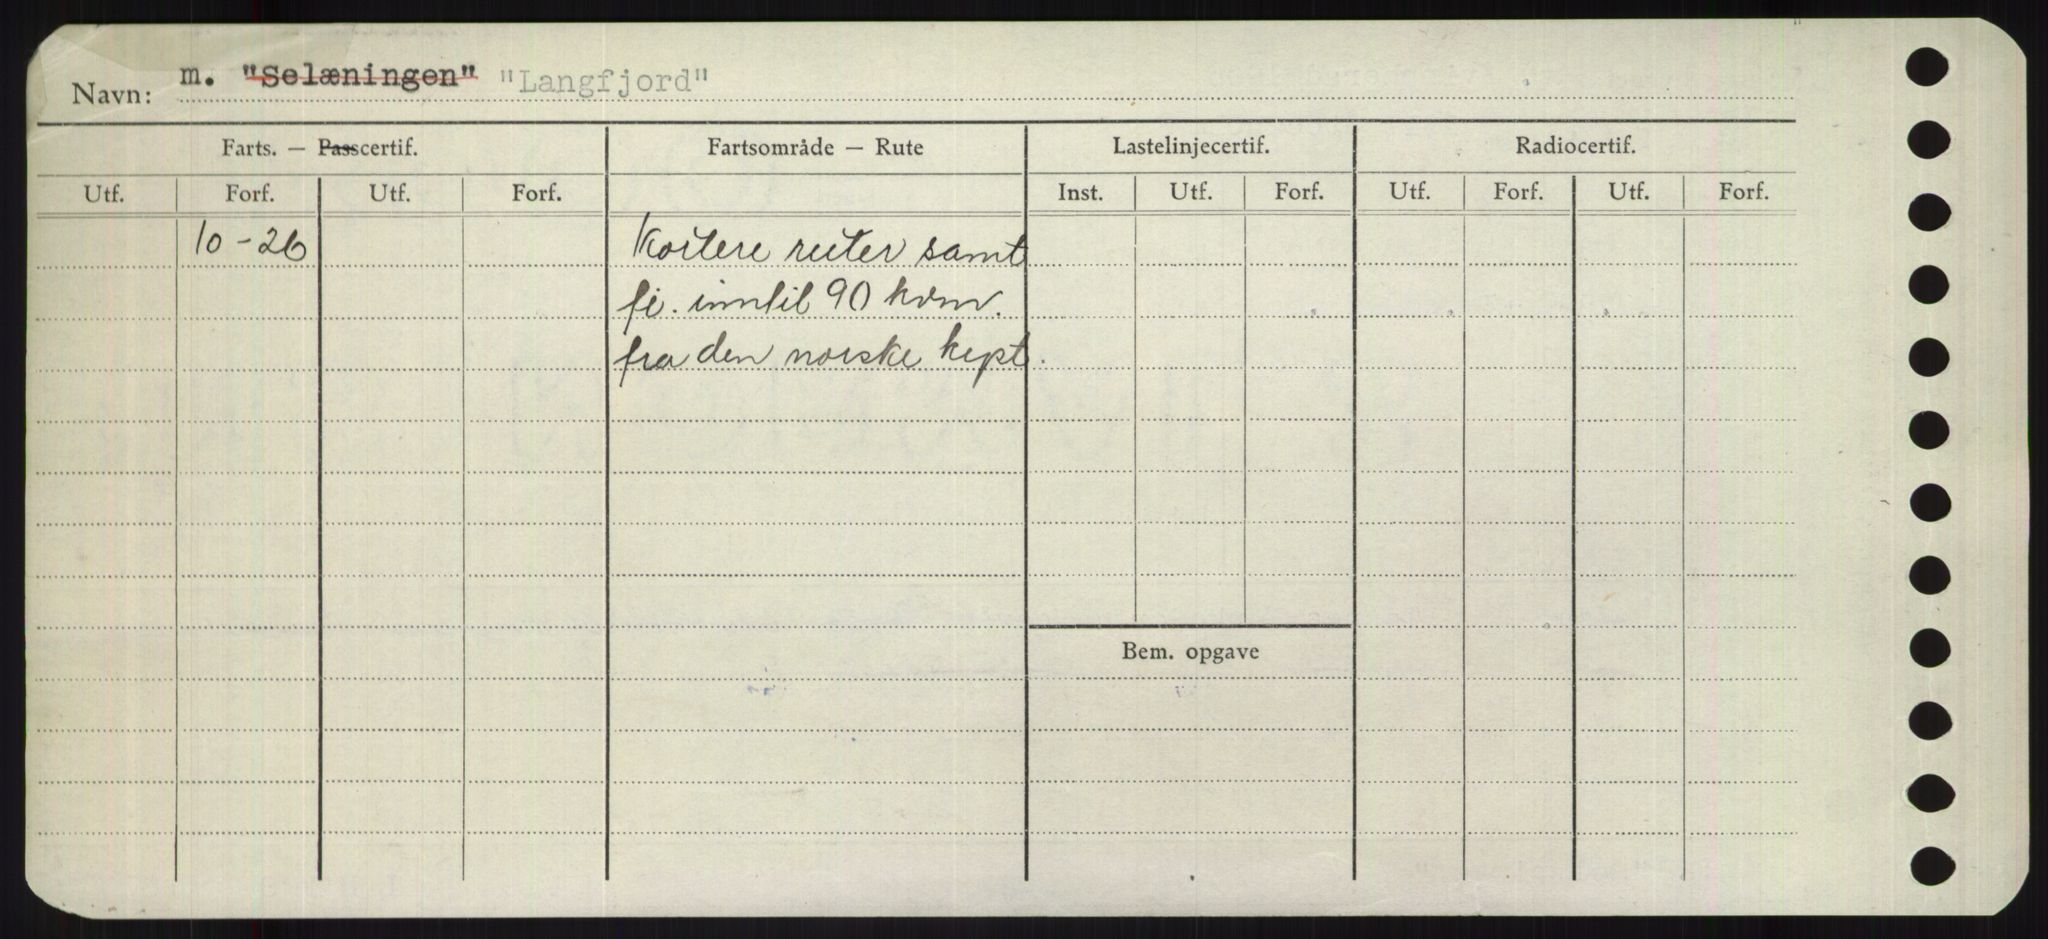 Navn: m. "Selæningen" "Langfjord"
Farts. — Passcertif. Fartsområde — Rute Lastelinjecertif. Radiocertif.
Utf. Forf. Utf. Forf. Inst. Utf. Forf. Utf. Forf. Utf. Forf.
10-26 Kortere ruter samt
fi. inntil 90 kvm.
fra den norske kyst.
Bem. opgave